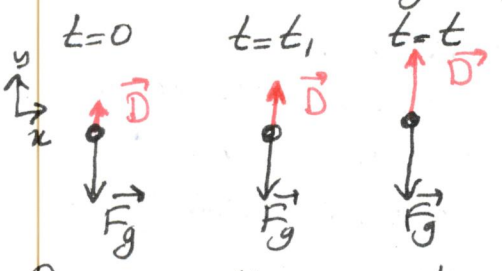 t=0 t=t₁ t=t
y
x
D⃗ D⃗ D⃗
F⃗g F⃗g F⃗g